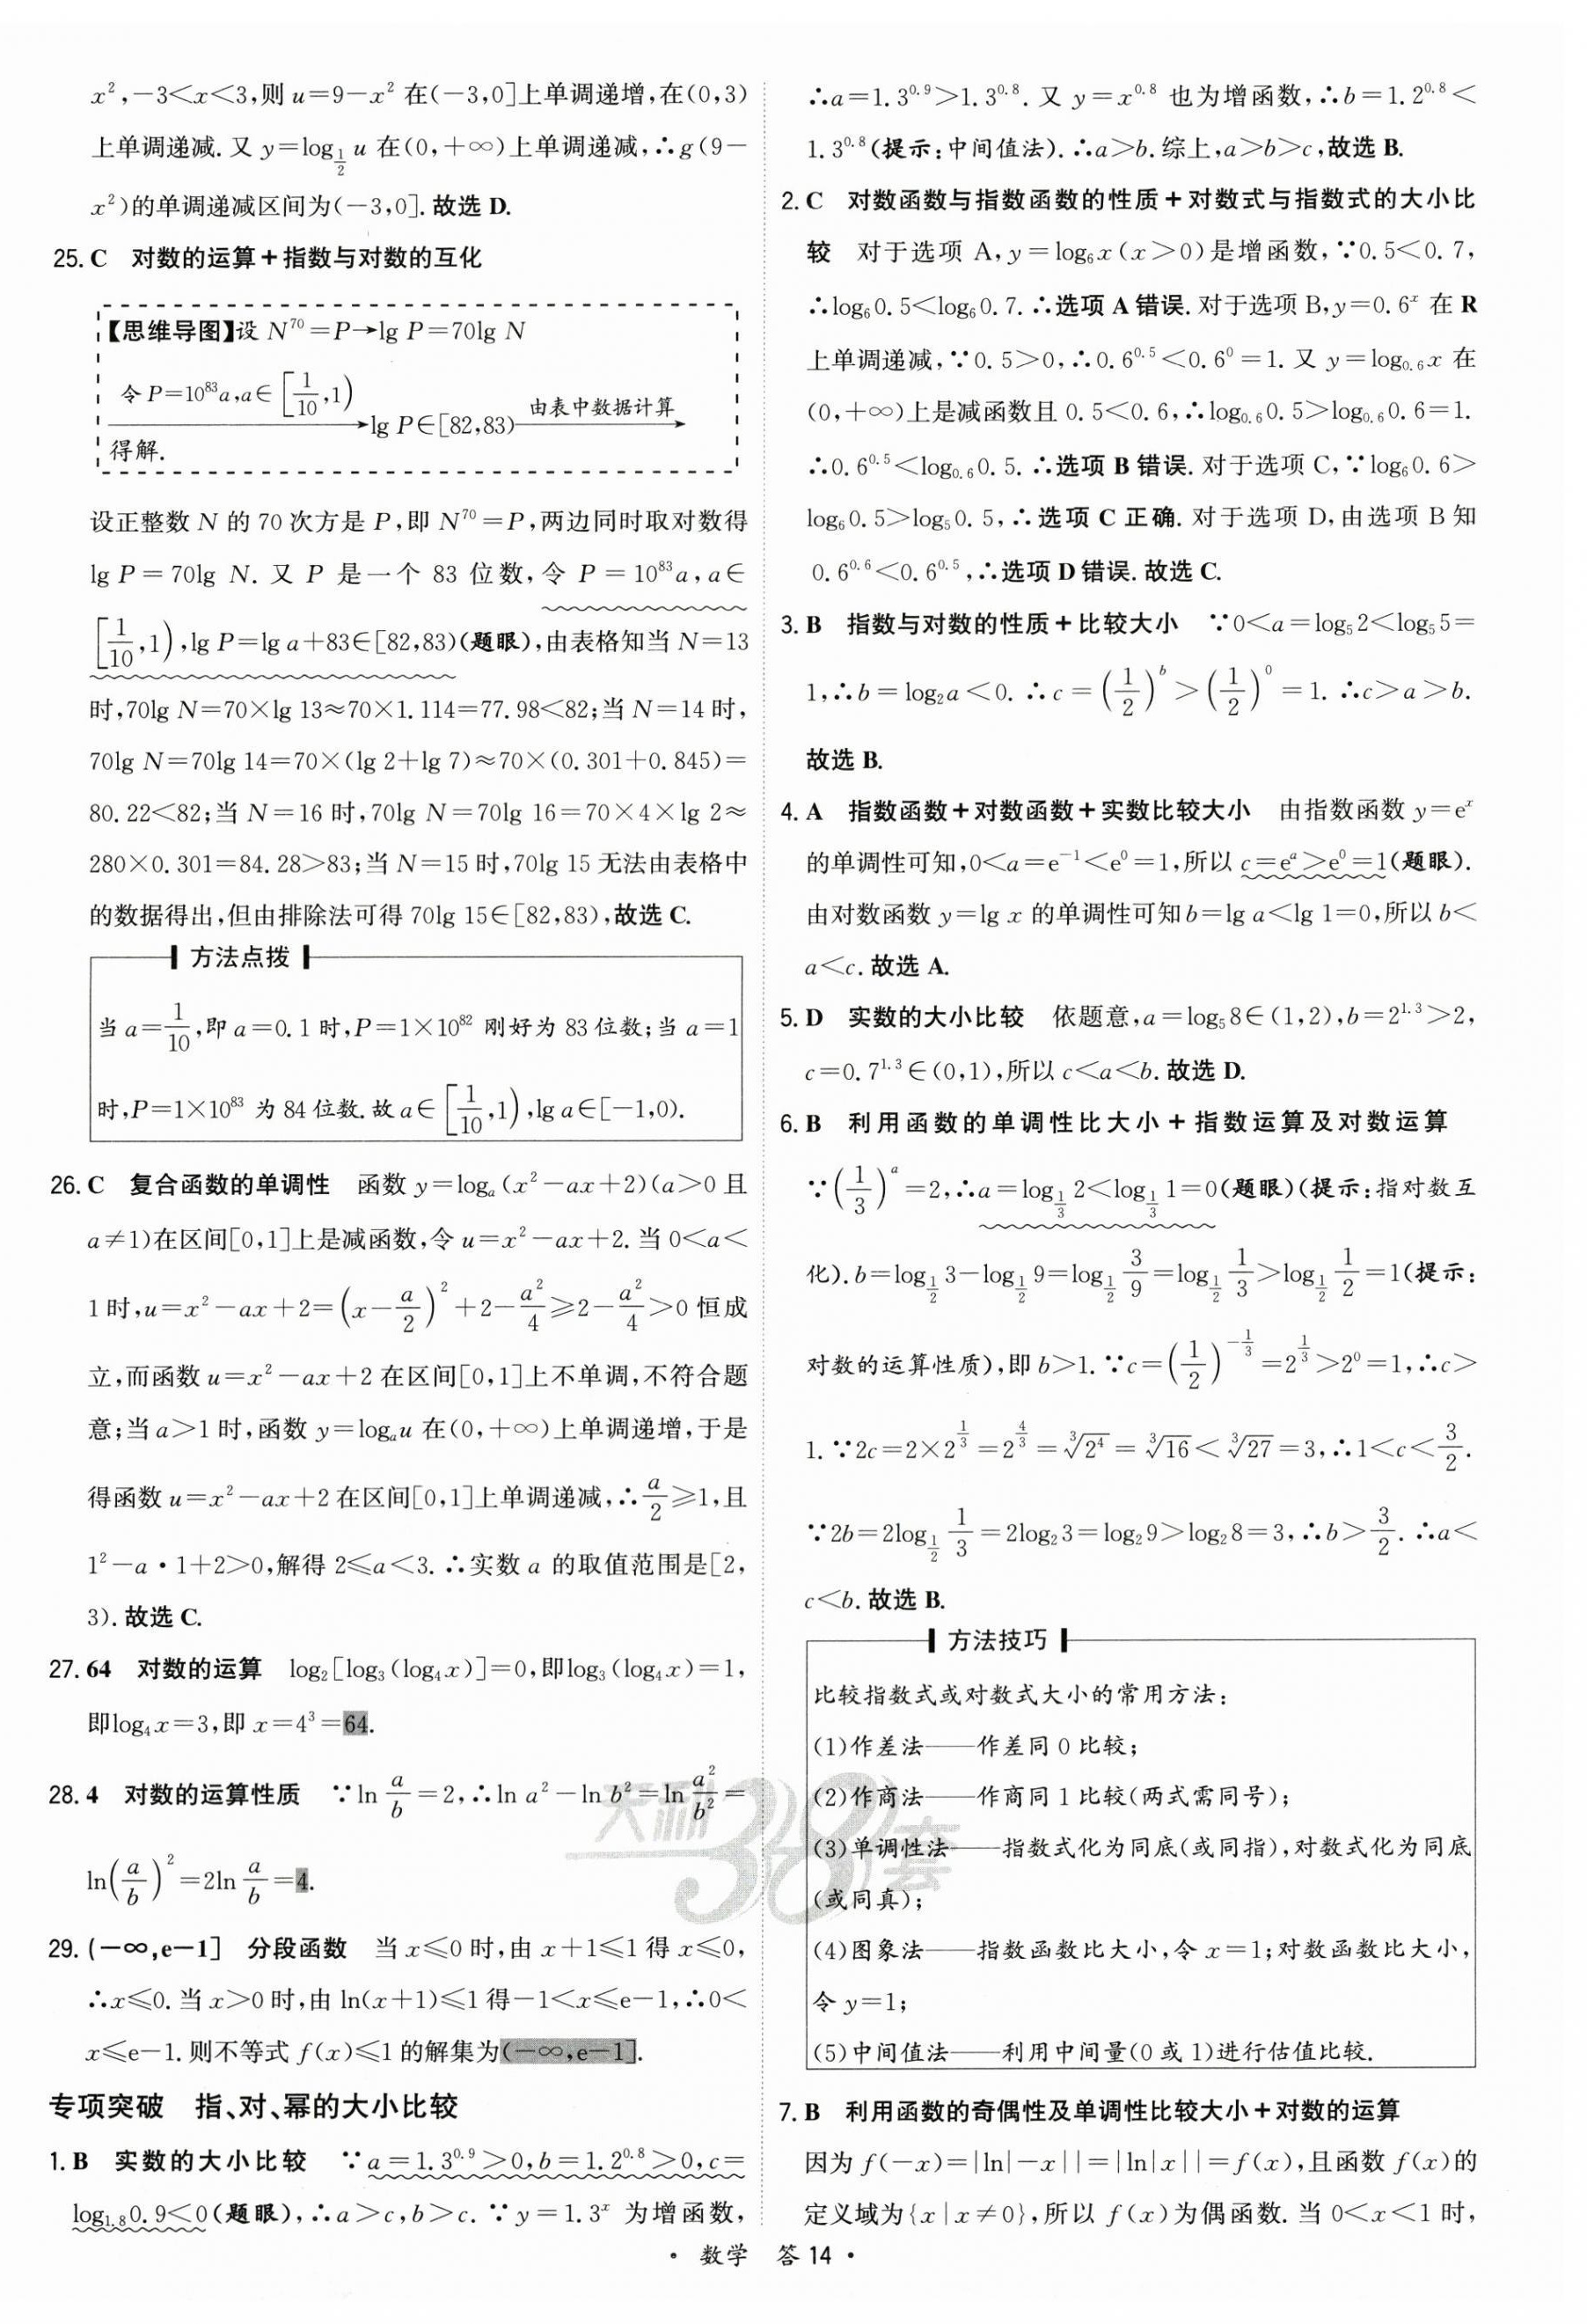 x²,-3<x<3,则 u=9-x² 在(-3,0]上单调递增,在(0,3)
上单调递减.又 y=log_{1/2} u 在(0,+∞)上单调递减,∴g(9-
x²)的单调递减区间为(-3,0].故选 D.
25. C 对数的运算+指数与对数的互化
【思维导图】设 N⁷⁰=P→lg P=70lg N
令 P=10⁸³a,a∈[1/10,1)→lg P∈[82,83) 由表中数据计算→
得解.
设正整数 N 的 70 次方是 P,即 N⁷⁰=P,两边同时取对数得
lg P=70lg N. 又 P 是一个 83 位数,令 P=10⁸³a,a∈
[1/10,1),lg P=lg a+83∈[82,83)(题眼),由表格知当 N=13
时,70lg N=70×lg 13≈70×1.114=77.98<82;当 N=14 时,
70lg N=70lg 14=70×(lg 2+lg 7)≈70×(0.301+0.845)=
80.22<82;当 N=16 时,70lg N=70lg 16=70×4×lg 2≈
280×0.301=84.28>83;当 N=15 时,70lg 15 无法由表格中
的数据得出,但由排除法可得 70lg 15∈[82,83),故选 C.
方法点拨
当 a=1/10,即 a=0.1 时,P=1×10⁸² 刚好为 83 位数;当 a=1
时,P=1×10⁸³ 为 84 位数.故 a∈[1/10,1),lg a∈[-1,0).
26. C 复合函数的单调性 函数 y=logₐ(x²-ax+2)(a>0 且
a≠1)在区间[0,1]上是减函数,令 u=x²-ax+2. 当 0<a<
1 时,u=x²-ax+2=(x-a/2)²+2-a²/4≥2-a²/4>0 恒成
立,而函数 u=x²-ax+2 在区间[0,1]上不单调,不符合题
意;当 a>1 时,函数 y=logₐu 在(0,+∞)上单调递增,于是
得函数 u=x²-ax+2 在区间[0,1]上单调递减,∴a/2≥1,且
1²-a·1+2>0,解得 2≤a<3. ∴实数 a 的取值范围是[2,
3).故选 C.
27. 64 对数的运算 log₂[log₃(log₄x)]=0,即log₃(log₄x)=1,
即log₄x=3,即 x=4³=64.
28. 4 对数的运算性质 ∵ln a/b=2,∴ln a²-ln b²=ln a²/b²=
ln(a/b)²=2ln a/b=4.
29. (-∞,e-1] 分段函数 当 x≤0 时,由 x+1≤1 得 x≤0,
∴x≤0. 当 x>0 时,由 ln(x+1)≤1 得-1<x≤e-1,∴0<
x≤e-1.则不等式 f(x)≤1 的解集为(-∞,e-1].
专项突破 指、对、幂的大小比较
1. B 实数的大小比较 ∵a=1.3^{0.9}>0,b=1.2^{0.8}>0,c=
log_{1.8}0.9<0(题眼),∴a>c,b>c. ∵y=1.3ˣ 为增函数,
∴a=1.3^{0.9}>1.3^{0.8}. 又 y=x^{0.8} 也为增函数,∴b=1.2^{0.8}<
1.3^{0.8}(提示:中间值法).∴a>b.综上,a>b>c,故选 B.
2. C 对数函数与指数函数的性质+对数式与指数式的大小比
较 对于选项 A,y=log₆x(x>0)是增函数,∵0.5<0.7,
∴log₆0.5<log₆0.7. ∴选项 A 错误.对于选项 B,y=0.6ˣ 在 R
上单调递减,∵0.5>0,∴0.6^{0.5}<0.6⁰=1. 又 y=log_{0.6}x 在
(0,+∞)上是减函数且 0.5<0.6,∴log_{0.6}0.5>log_{0.6}0.6=1.
∴0.6^{0.5}<log_{0.6}0.5. ∴选项 B 错误.对于选项 C,∵log₆0.6>
log₆0.5>log₅0.5,∴选项 C 正确.对于选项 D,由选项 B 知
0.6^{0.6}<0.6^{0.5},∴选项 D 错误.故选 C.
3. B 指数与对数的性质+比较大小 ∵0<a=log₅2<log₅5=
1,∴b=log₂a<0. ∴c=(1/2)^b>(1/2)⁰=1. ∴c>a>b.
故选 B.
4. A 指数函数+对数函数+实数比较大小 由指数函数 y=eˣ
的单调性可知,0<a=e⁻¹<e⁰=1,所以 c=eᵃ>e⁰=1(题眼).
由对数函数 y=lg x 的单调性可知b=lg a<lg 1=0,所以 b<
a<c.故选 A.
5. D 实数的大小比较 依题意,a=log₅8∈(1,2),b=2^{1.3}>2,
c=0.7^{1.3}∈(0,1),所以 c<a<b.故选 D.
6. B 利用函数的单调性比大小+指数运算及对数运算
∵(1/3)ᵃ=2,∴a=log_{1/3}2<log_{1/3}1=0(题眼)(提示:指对数互
化).b=log_{1/2}3-log_{1/2}9=log_{1/2}3/9=log_{1/2}1/3>log_{1/2}1/2=1(提示:
对数的运算性质),即 b>1. ∵c=(1/2)^{-1/3}=2^{1/3}>2⁰=1,∴c>
1. ∵2c=2×2^{1/3}=2^{4/3}=∛2⁴=∛16<∛27=3,∴1<c<3/2.
∵2b=2log_{1/2}1/3=2log₂3=log₂9>log₂8=3,∴b>3/2. ∴a<
c<b.故选 B.
方法技巧
比较指数式或对数式大小的常用方法:
(1)作差法——作差同 0 比较;
(2)作商法——作商同 1 比较(两式需同号);
(3)单调性法——指数式化为同底(或同指),对数式化为同底
(或同真);
(4)图象法——指数函数比大小,令 x=1;对数函数比大小,
令 y=1;
(5)中间值法——利用中间量(0 或 1)进行估值比较.
7. B 利用函数的奇偶性及单调性比较大小+对数的运算
因为 f(-x)=|ln|-x||=|ln|x||=f(x),且函数 f(x)的
定义域为{x|x≠0},所以 f(x)为偶函数.当 0<x<1 时,
天利38套
· 数学 答 14 ·